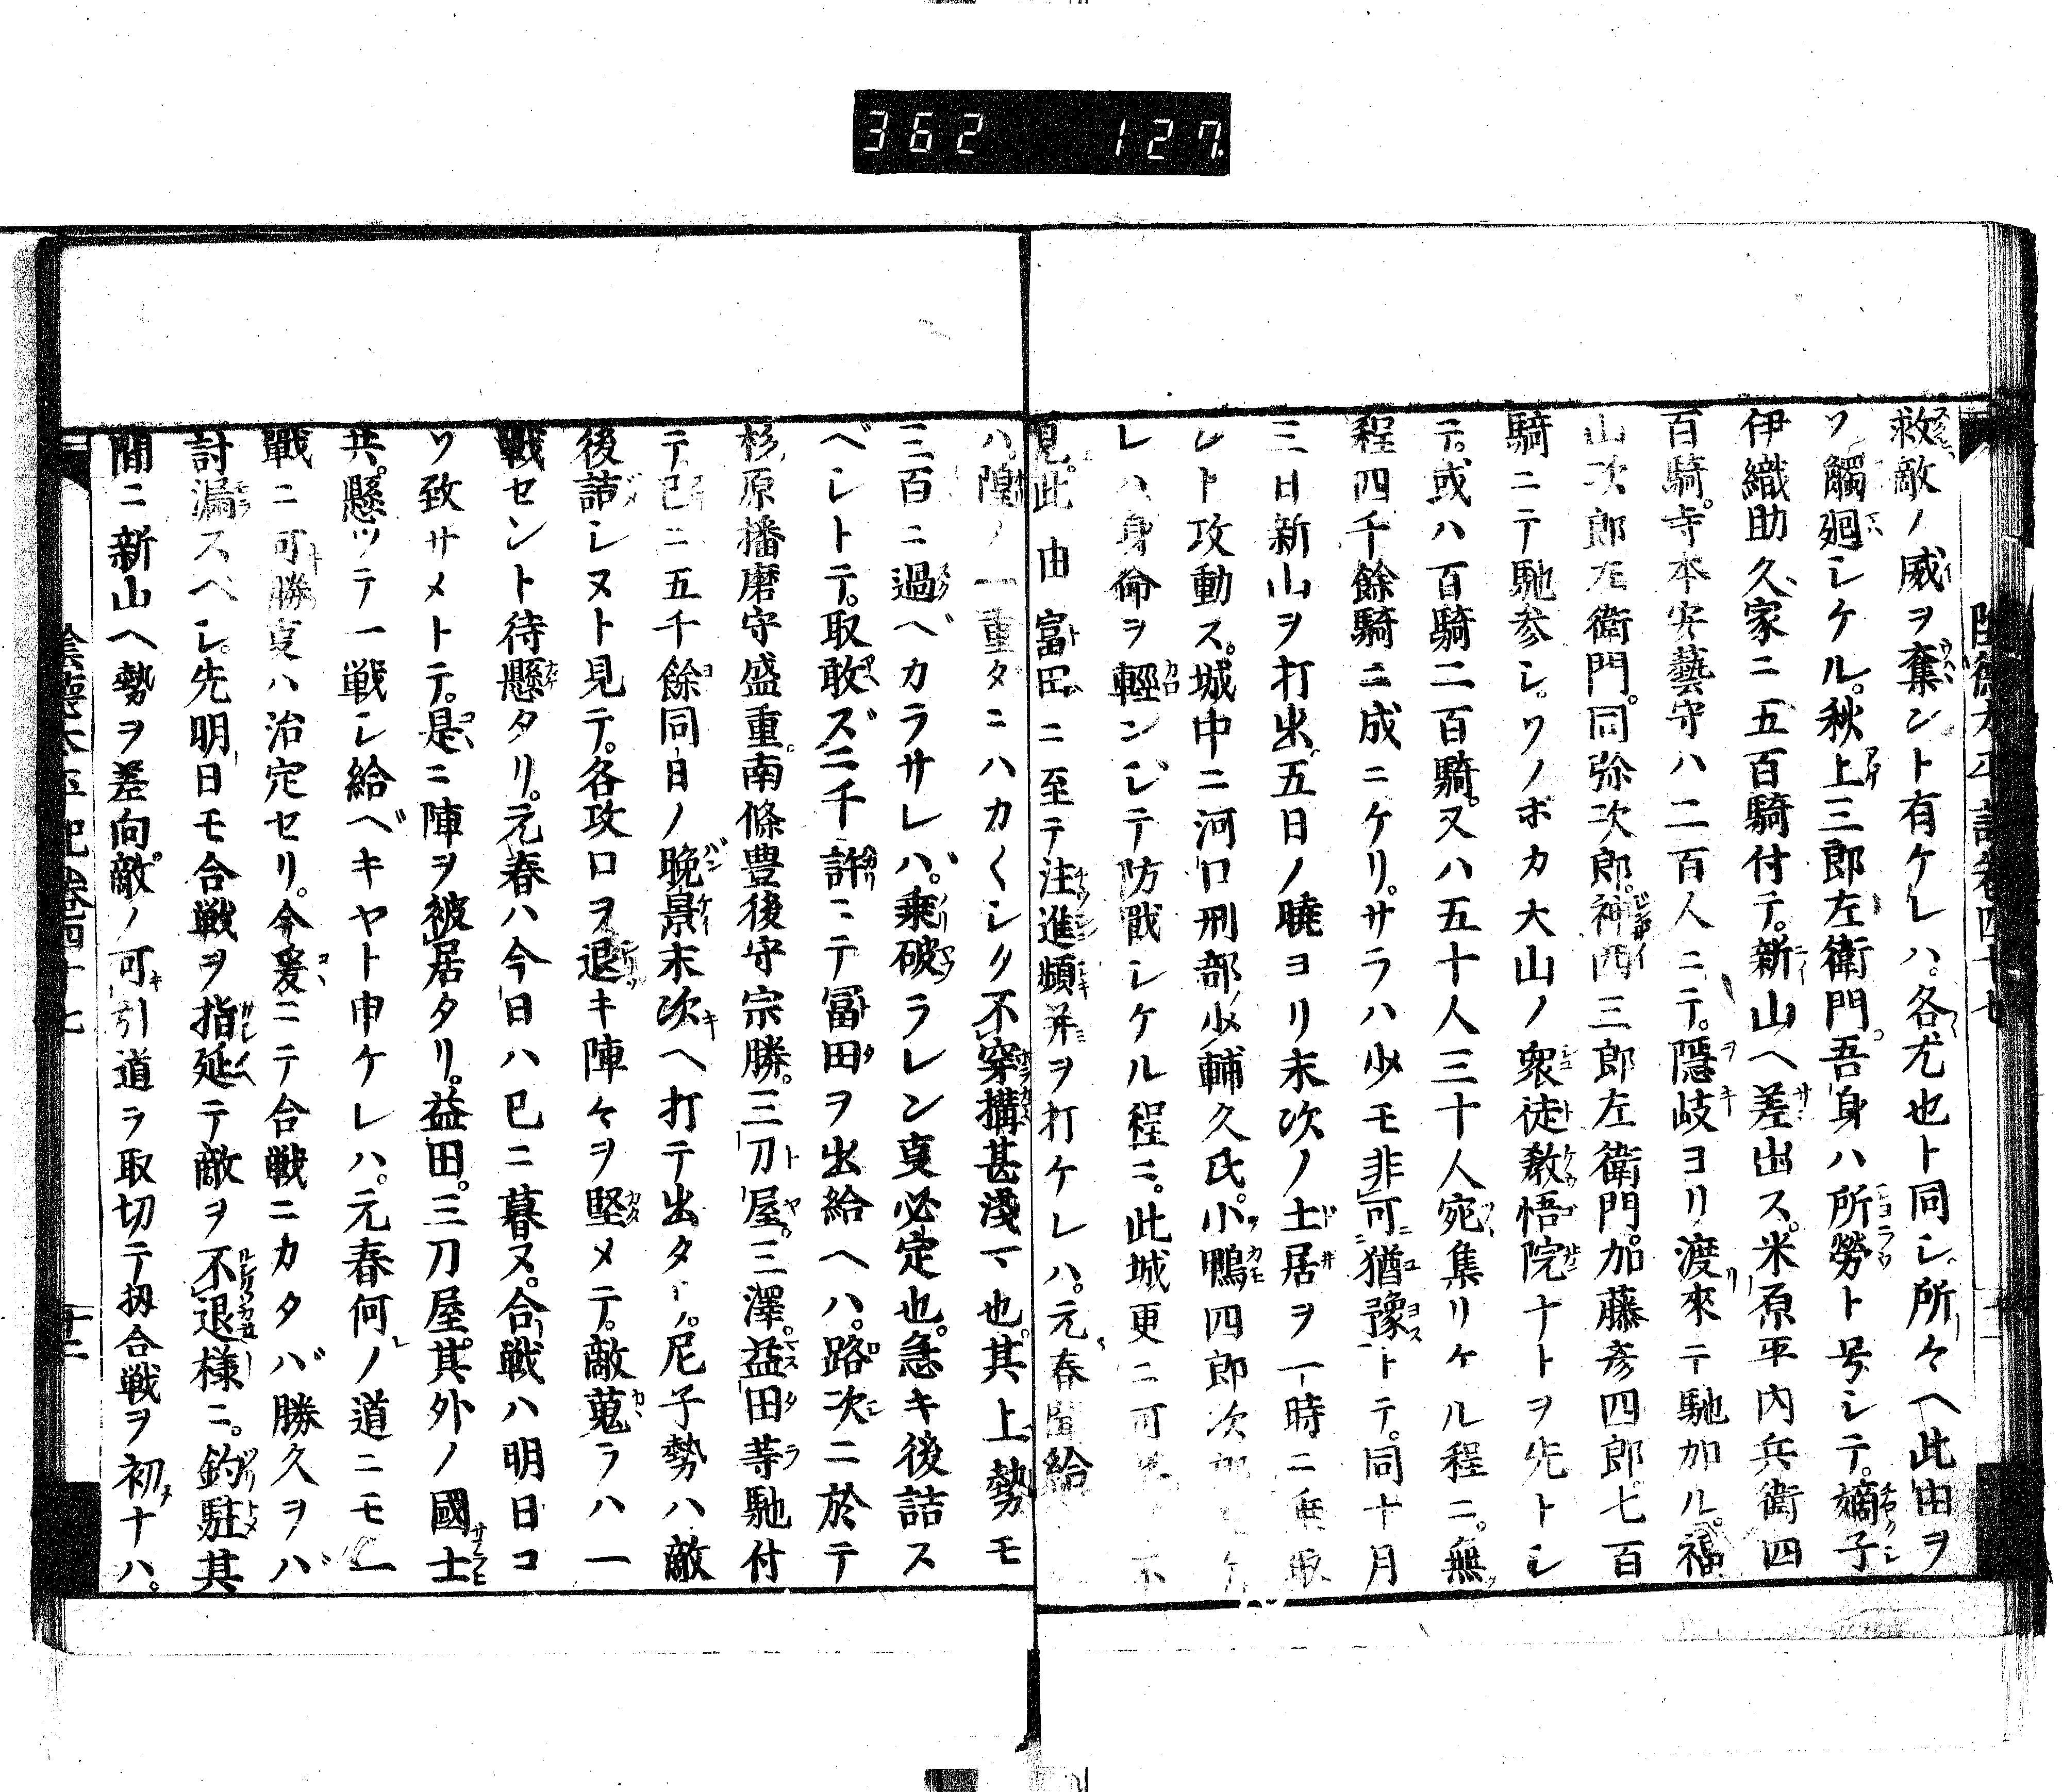 362 127
救敵ノ威ヲ奪ント有ケレハ。各尤也ト同シ所々へ此由ヲ
ソ觸廻シケル。秋上三郎左衛門。吾身ハ所勞ト号シテ。嫡子
伊織助久家ニ五百騎付テ。新山へ差出ス。米原平内兵衛四
百騎。寺本安藝守ハ二百人ニテ。隱岐ヨリ渡來テ馳加ル。福
山次郎左衛門。同弥次郎。神西三郎左衛門。加藤彦四郎七百
騎ニテ馳参シ。ソノホカ大山ノ衆徒教悟院ナトヲ先トシ
テ。或ハ百騎二百騎。又ハ五十人三十人宛集リケル程ニ。無
程四千餘騎ニ成ニケリ。サラハ少モ非可猶豫トテ。同十月
三日新山ヲ打出五日ノ曉ヨリ末次ノ土居ヲ一時ニ乗取
レト攻動ス。城中ニ河口刑部少輔久氏。小鴨四郎次郎
レハ身命ヲ輕ンジテ防戰シケル程ニ。此城更ニ可 不
見。此由富田ニ至テ注進頻并ヲ打ケレハ。元春聞給
ハ。隍ノ一重ダニハカ〱シク不穿搆甚淺マ也。其上勢モ
三百ニ過ベカラサレバ。乗破ラレン叓必定也。急キ後詰ス
ベシトテ。取敢ズ二千許ニテ冨田ヲ出給ヘハ。路次ニ於テ
杉原播磨守盛重。南條豊後守宗勝。三刀屋。三澤。益田等馳付
テ。已ニ五千餘同日ノ晩景末次へ打テ出タリ。尼子勢ハ敵
後詰シヌト見テ。各攻口ヲ退キ陣々ヲ堅メテ。敵蒐ラハ一
戰セント待懸タリ。元春ハ今日ハ已ニ暮ヌ。合戦ハ明日コ
ソ致サメトテ。是ニ陣ヲ被居タリ。益田。三刀屋。其外ノ國士
共。懸ツテ一戦シ給ベキヤト申ケレハ。元春何ノ道ニモ一
戰ニ可勝叓ハ治定セリ。今爰ニテ合戦ニカタバ勝久ヲバ
討漏スヘシ。先明日モ合戦ヲ指延テ敵ヲ不退様ニ。釣駐其
間ニ新山へ勢ヲ差向。敵ノ可引道ヲ取切テ扨合戦ヲ初ナハ。
陰德太平記卷四十七 十二